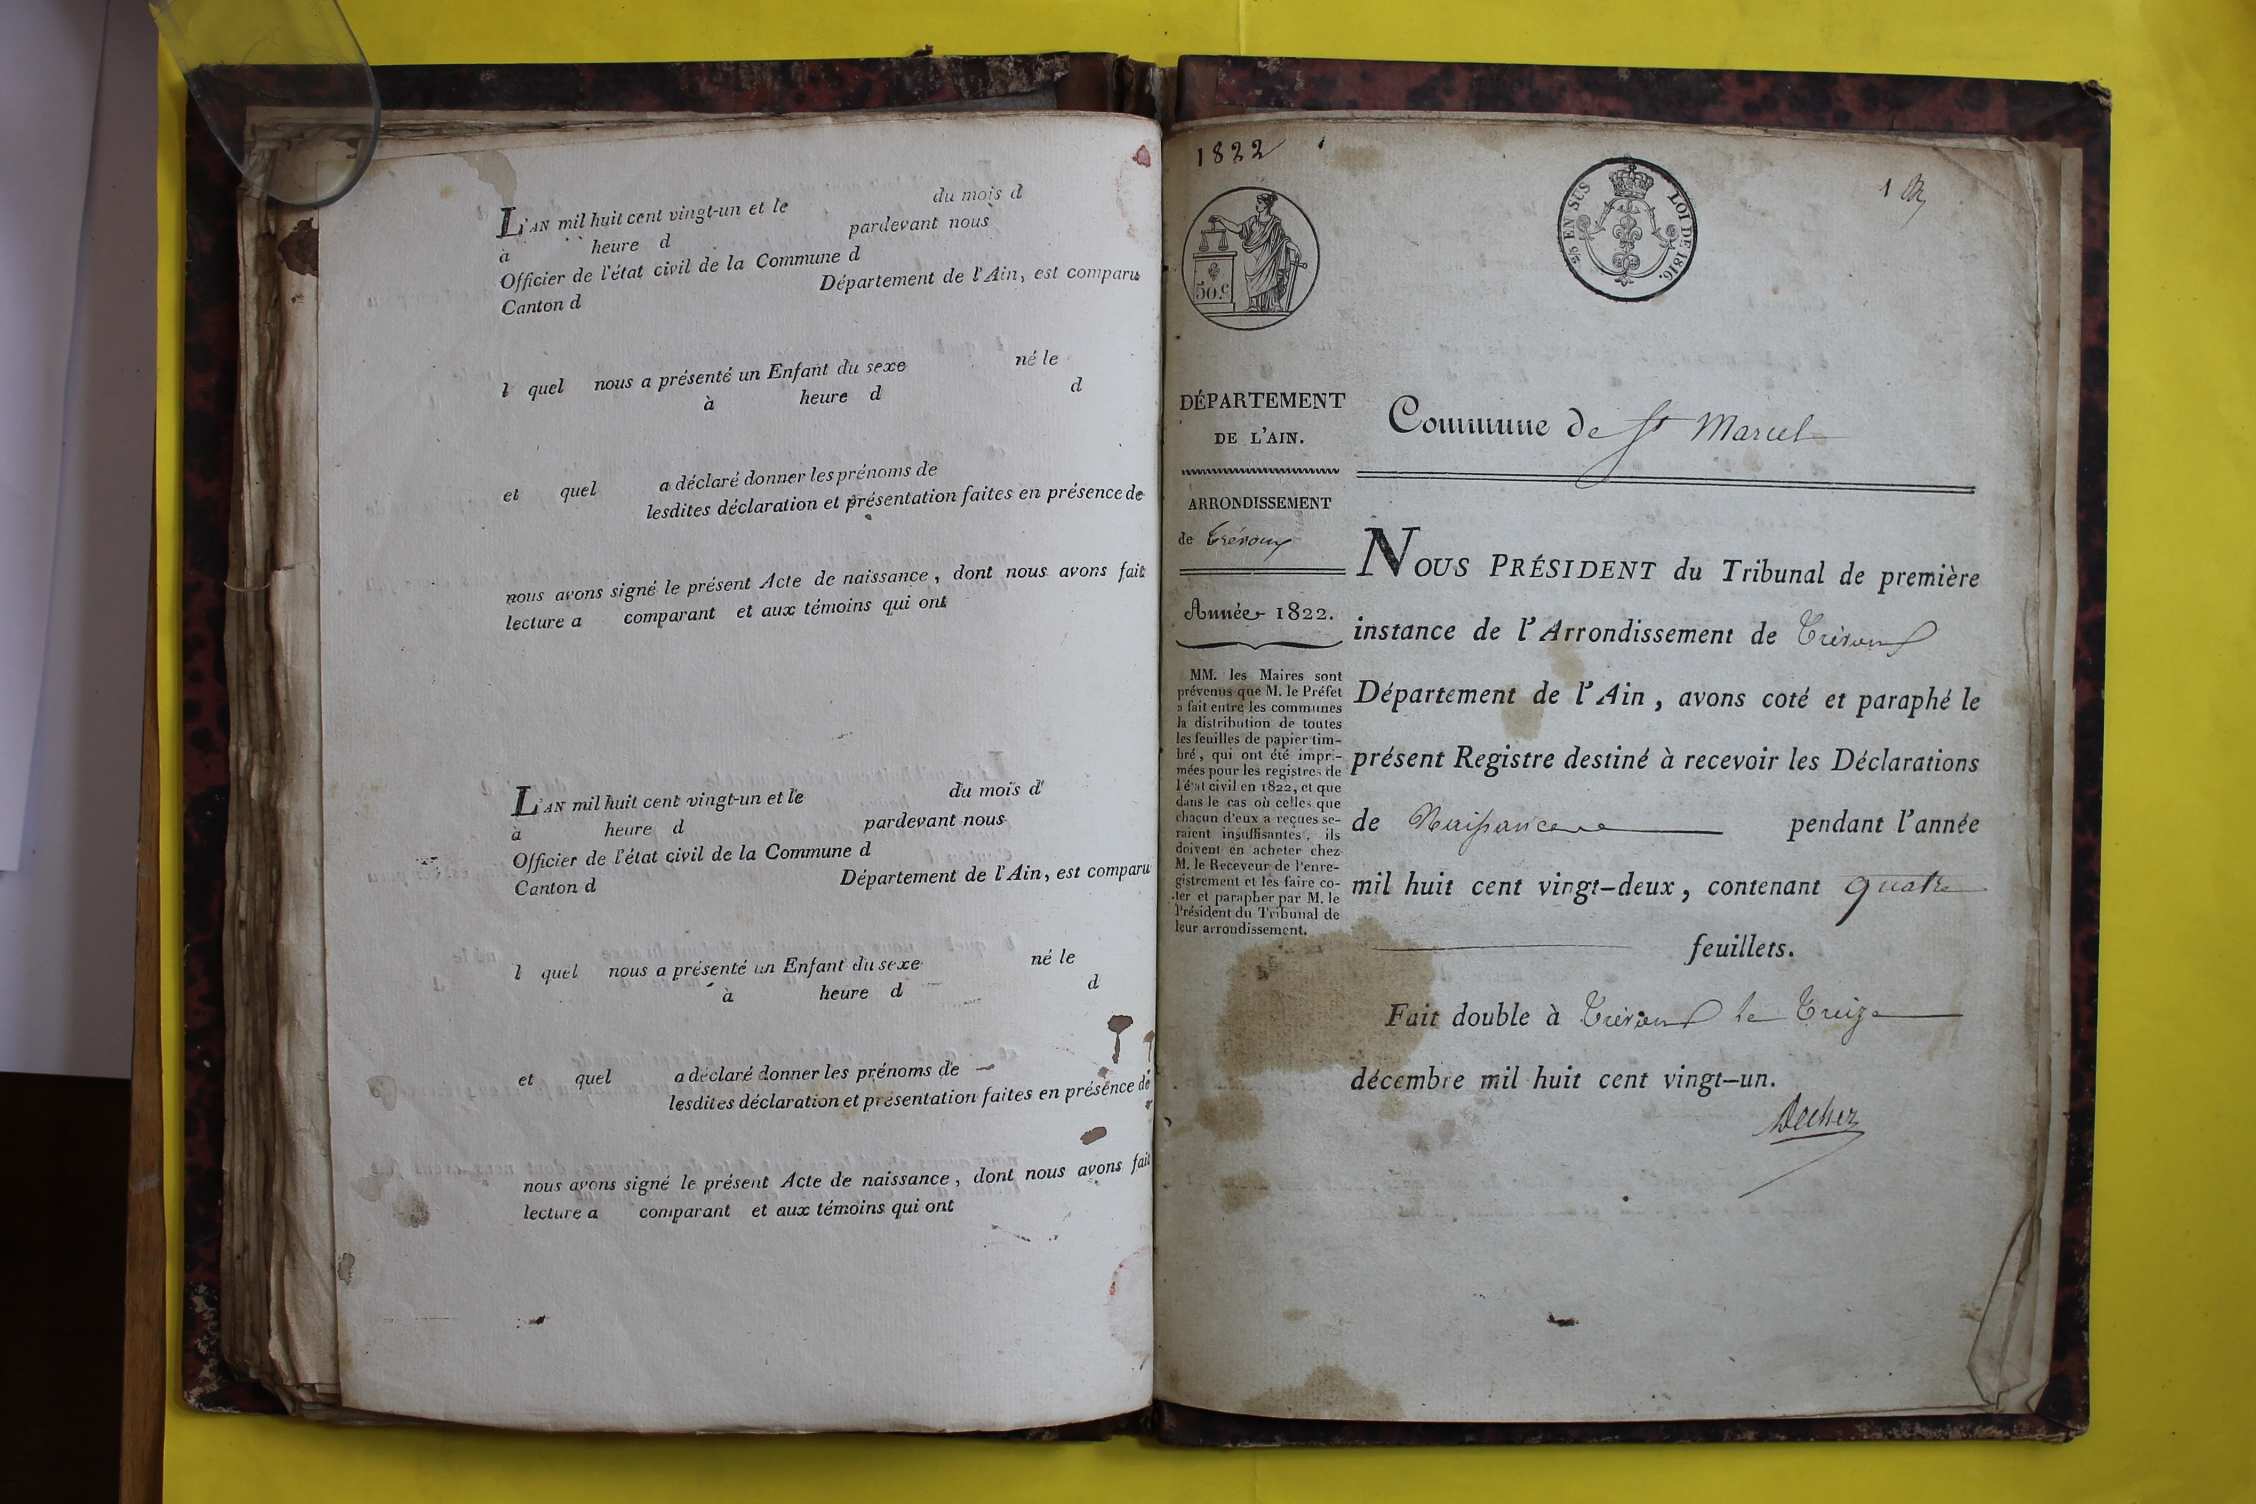 L'AN mil huit cent vingt-un et le du mois d
à heure d pardevant nous
Officier de l'état civil de la Commune d
Canton d Département de l'Ain, est comparu
l quel nous a présenté un Enfant du sexe né le
à heure d d
et quel a déclaré donner les prénoms de
lesdites déclaration et présentation faites en présence de
nous avons signé le présent Acte de naissance, dont nous avons fait
lecture a comparant et aux témoins qui ont
L'AN mil huit cent vingt-un et le du mois d
à heure d pardevant nous
Officier de l'état civil de la Commune d
Canton d Département de l'Ain, est comparu
l quel nous a présenté un Enfant du sexe né le
à heure d d
et quel a déclaré donner les prénoms de
lesdites déclaration et présentation faites en présence de
nous avons signé le présent Acte de naissance, dont nous avons fait
lecture a comparant et aux témoins qui ont
1822
1
50.c
EN SUS LOI DE 1816.
DÉPARTEMENT
DE L'AIN.
ARRONDISSEMENT
de Trévoux
Année 1822.
MM. les Maires sont
prévenus que M. le Préfet
a fait entre les communes
la distribution de toutes
les feuilles de papier tim-
bré, qui ont été impri-
mées pour les registres de
l'état civil en 1822, et que
dans le cas où celles que
chacun d'eux a reçues se-
raient insuffisantes, ils
doivent en acheter chez
M. le Receveur de l'enre-
gistrement et les faire co-
ter et parapher par M. le
Président du Tribunal de
leur arrondissement.
Commune de St Marcel
NOUS PRÉSIDENT du Tribunal de première
instance de l'Arrondissement de Trévoux
Département de l'Ain, avons coté et paraphé le
présent Registre destiné à recevoir les Déclarations
de Naissance pendant l'année
mil huit cent vingt-deux, contenant quatre
feuillets.
Fait double à Trévoux le Treize
décembre mil huit cent vingt-un.